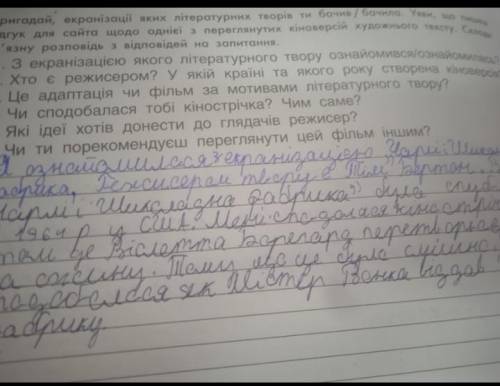 ригадай, екранізації яких літературних творів ти бачив / бачила. Уяви, що пишеш
дгук для сайта щодо однієї з переглянутих кіноверсій художнього тексту. Склади
'язну розповідь з відповідей на запитання.
З екранізацією якого літературного твору ознайомився/ознайомилась?
Хто є режисером? У якій країні та якого року створена кіноверсія
Це адаптація чи фільм за мотивами літературного твору?
Чи сподобалася тобі кінострічка? Чим саме?
Які ідеї хотів донести до глядачів режисер?
Чи ти порекомендуєш переглянути цей фільм іншим?
Я ознайомилася з екранізацією "Чарлі і Шокола
фабрика, Режисером твору є Тім Бертон.
Чарлі і Шоколадна фабрика" була
1964 р у США. Мені сподобалася кінострі
там де Віолетта Борегард перетворю
на сожину. Тому що це було смішно
подобалося як Містер Вонка віддав
фабрику.